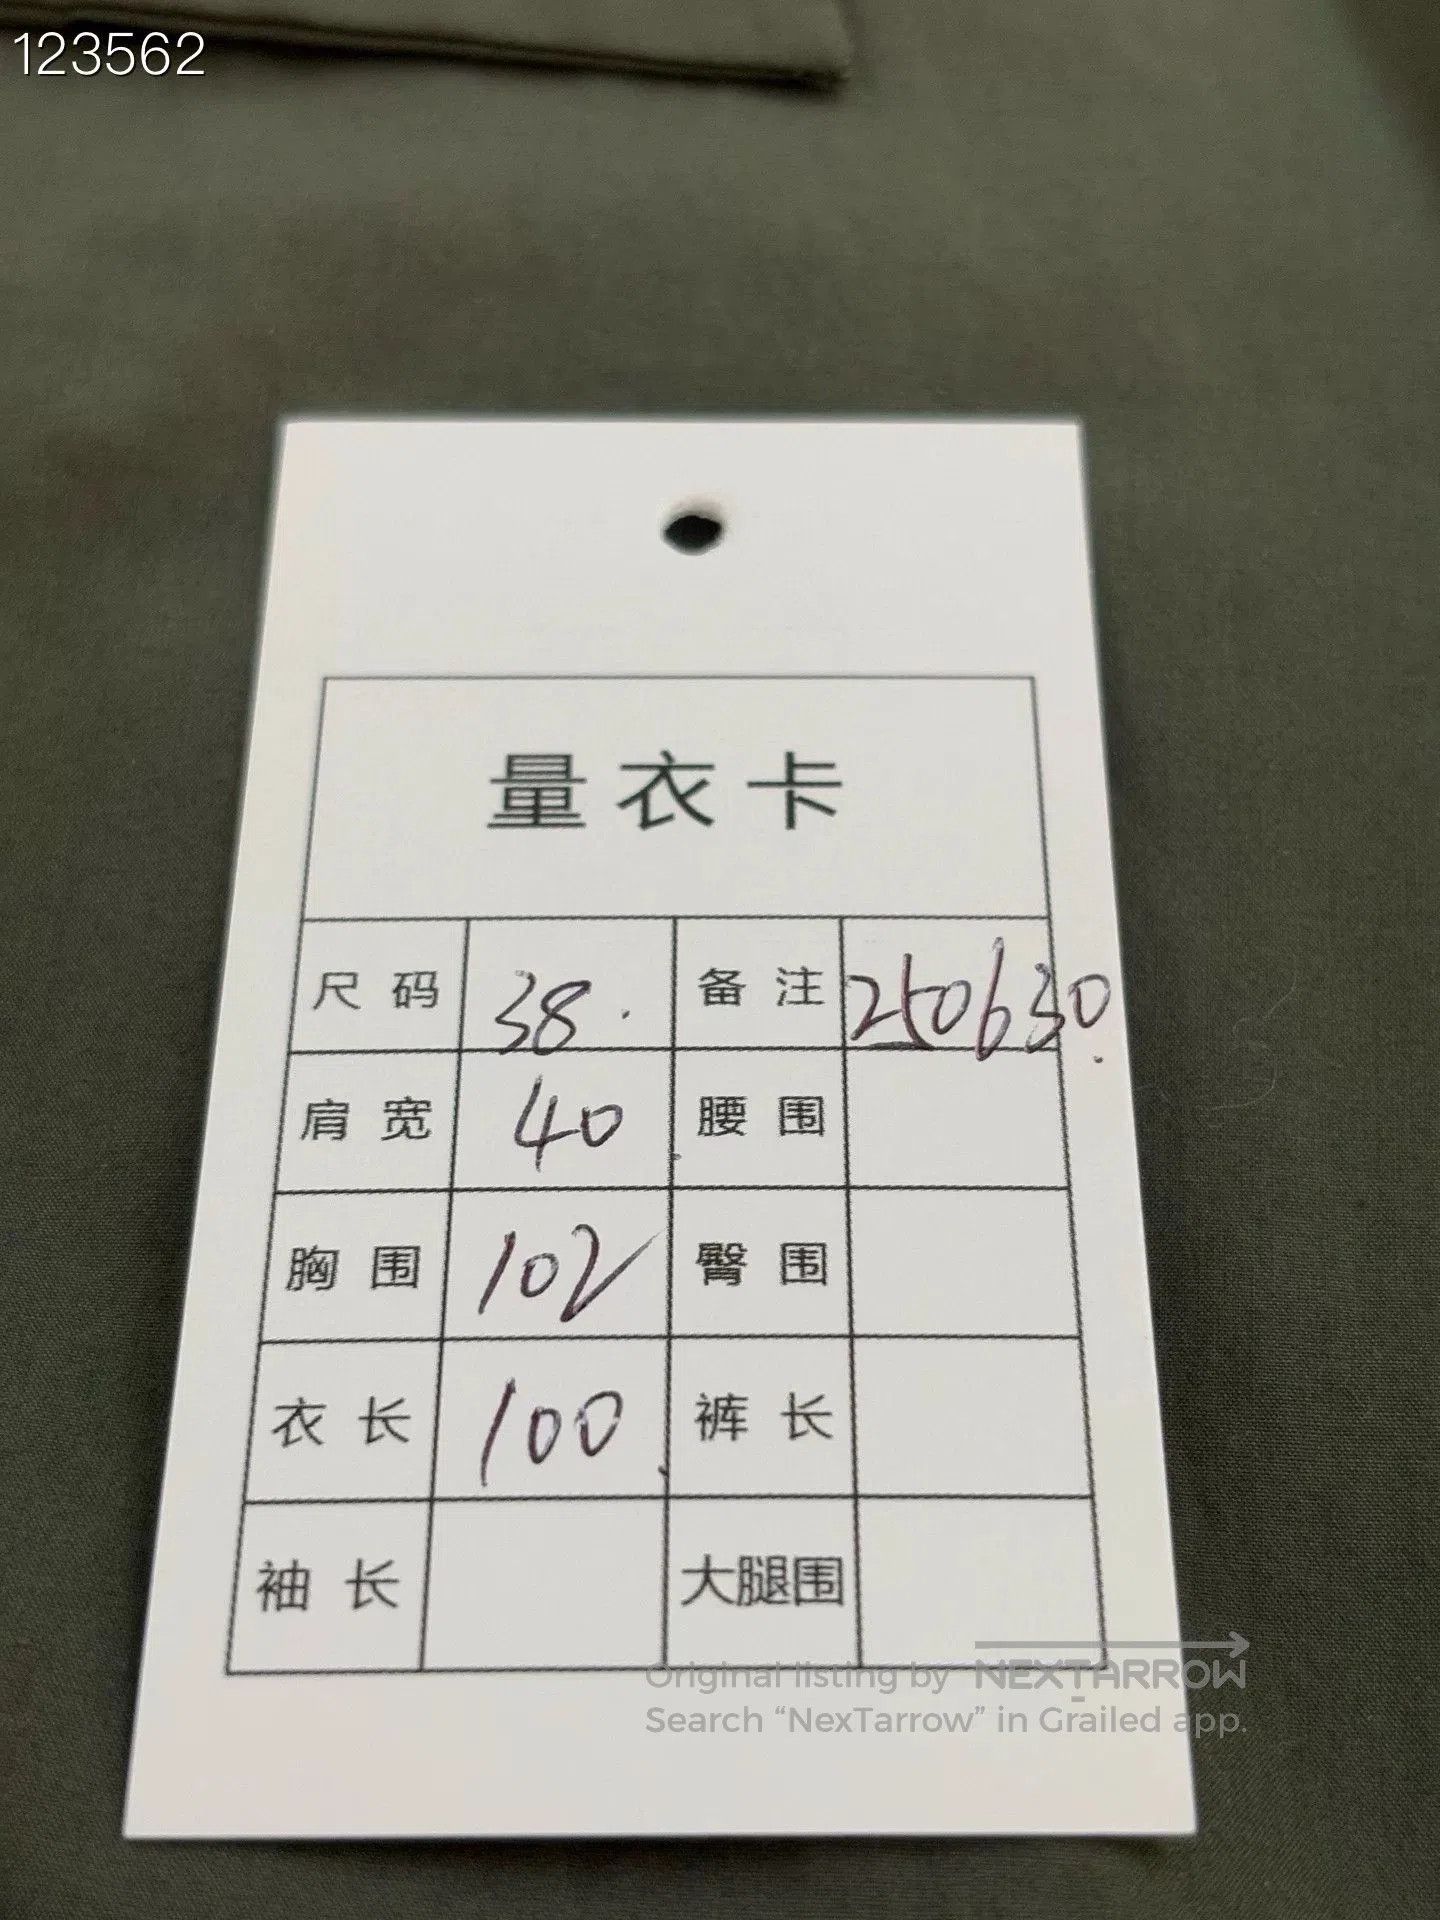 123562
量衣卡
尺码 38. 备注 250630.
肩宽 40 腰围
胸围 102 臀围
衣长 100 裤长
袖长 大腿围
Original listing by NEXTARROW
Search “NexTarrow” in Grailed app.